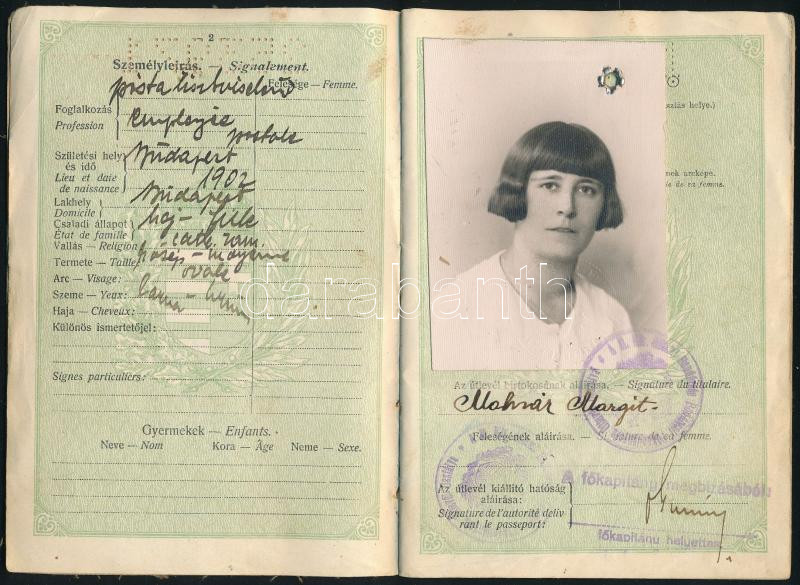 2
Személyleírás. — Signalement.
Felesége — Femme.
posta tisztviselőnő
Foglalkozás
Profession
Employée
postale
Születési hely
és idő
Lieu et date
de naissance
Budapest
1902
Lakhely
Domicile
Budapest
Családi állapot
État de famille
haj- fille
Vallás — Religion
cath. rom.
Termete — Taille
közép - moyenne
Arc — Visage:
ovale
Szeme — Yeux:
barna -
Haja — Cheveux:
Különös ismertetőjel:
Signes particuliers:
Gyermekek — Enfants.
Neve — Nom Kora — Âge Neme — Sexe.
helye.)
nek arcképe.
ie de sa femme.
darabanth
Az útlevél birtokosának aláírása. — Signature du titulaire.
Molnár Margit
Feleségének aláírása. — Signature de sa femme.
A főkapitány megbizásából:
Az útlevél kiállító hatóság
aláírása:
Signature de l'autorité deliv
rant le passeport:
főkapitány helyettes